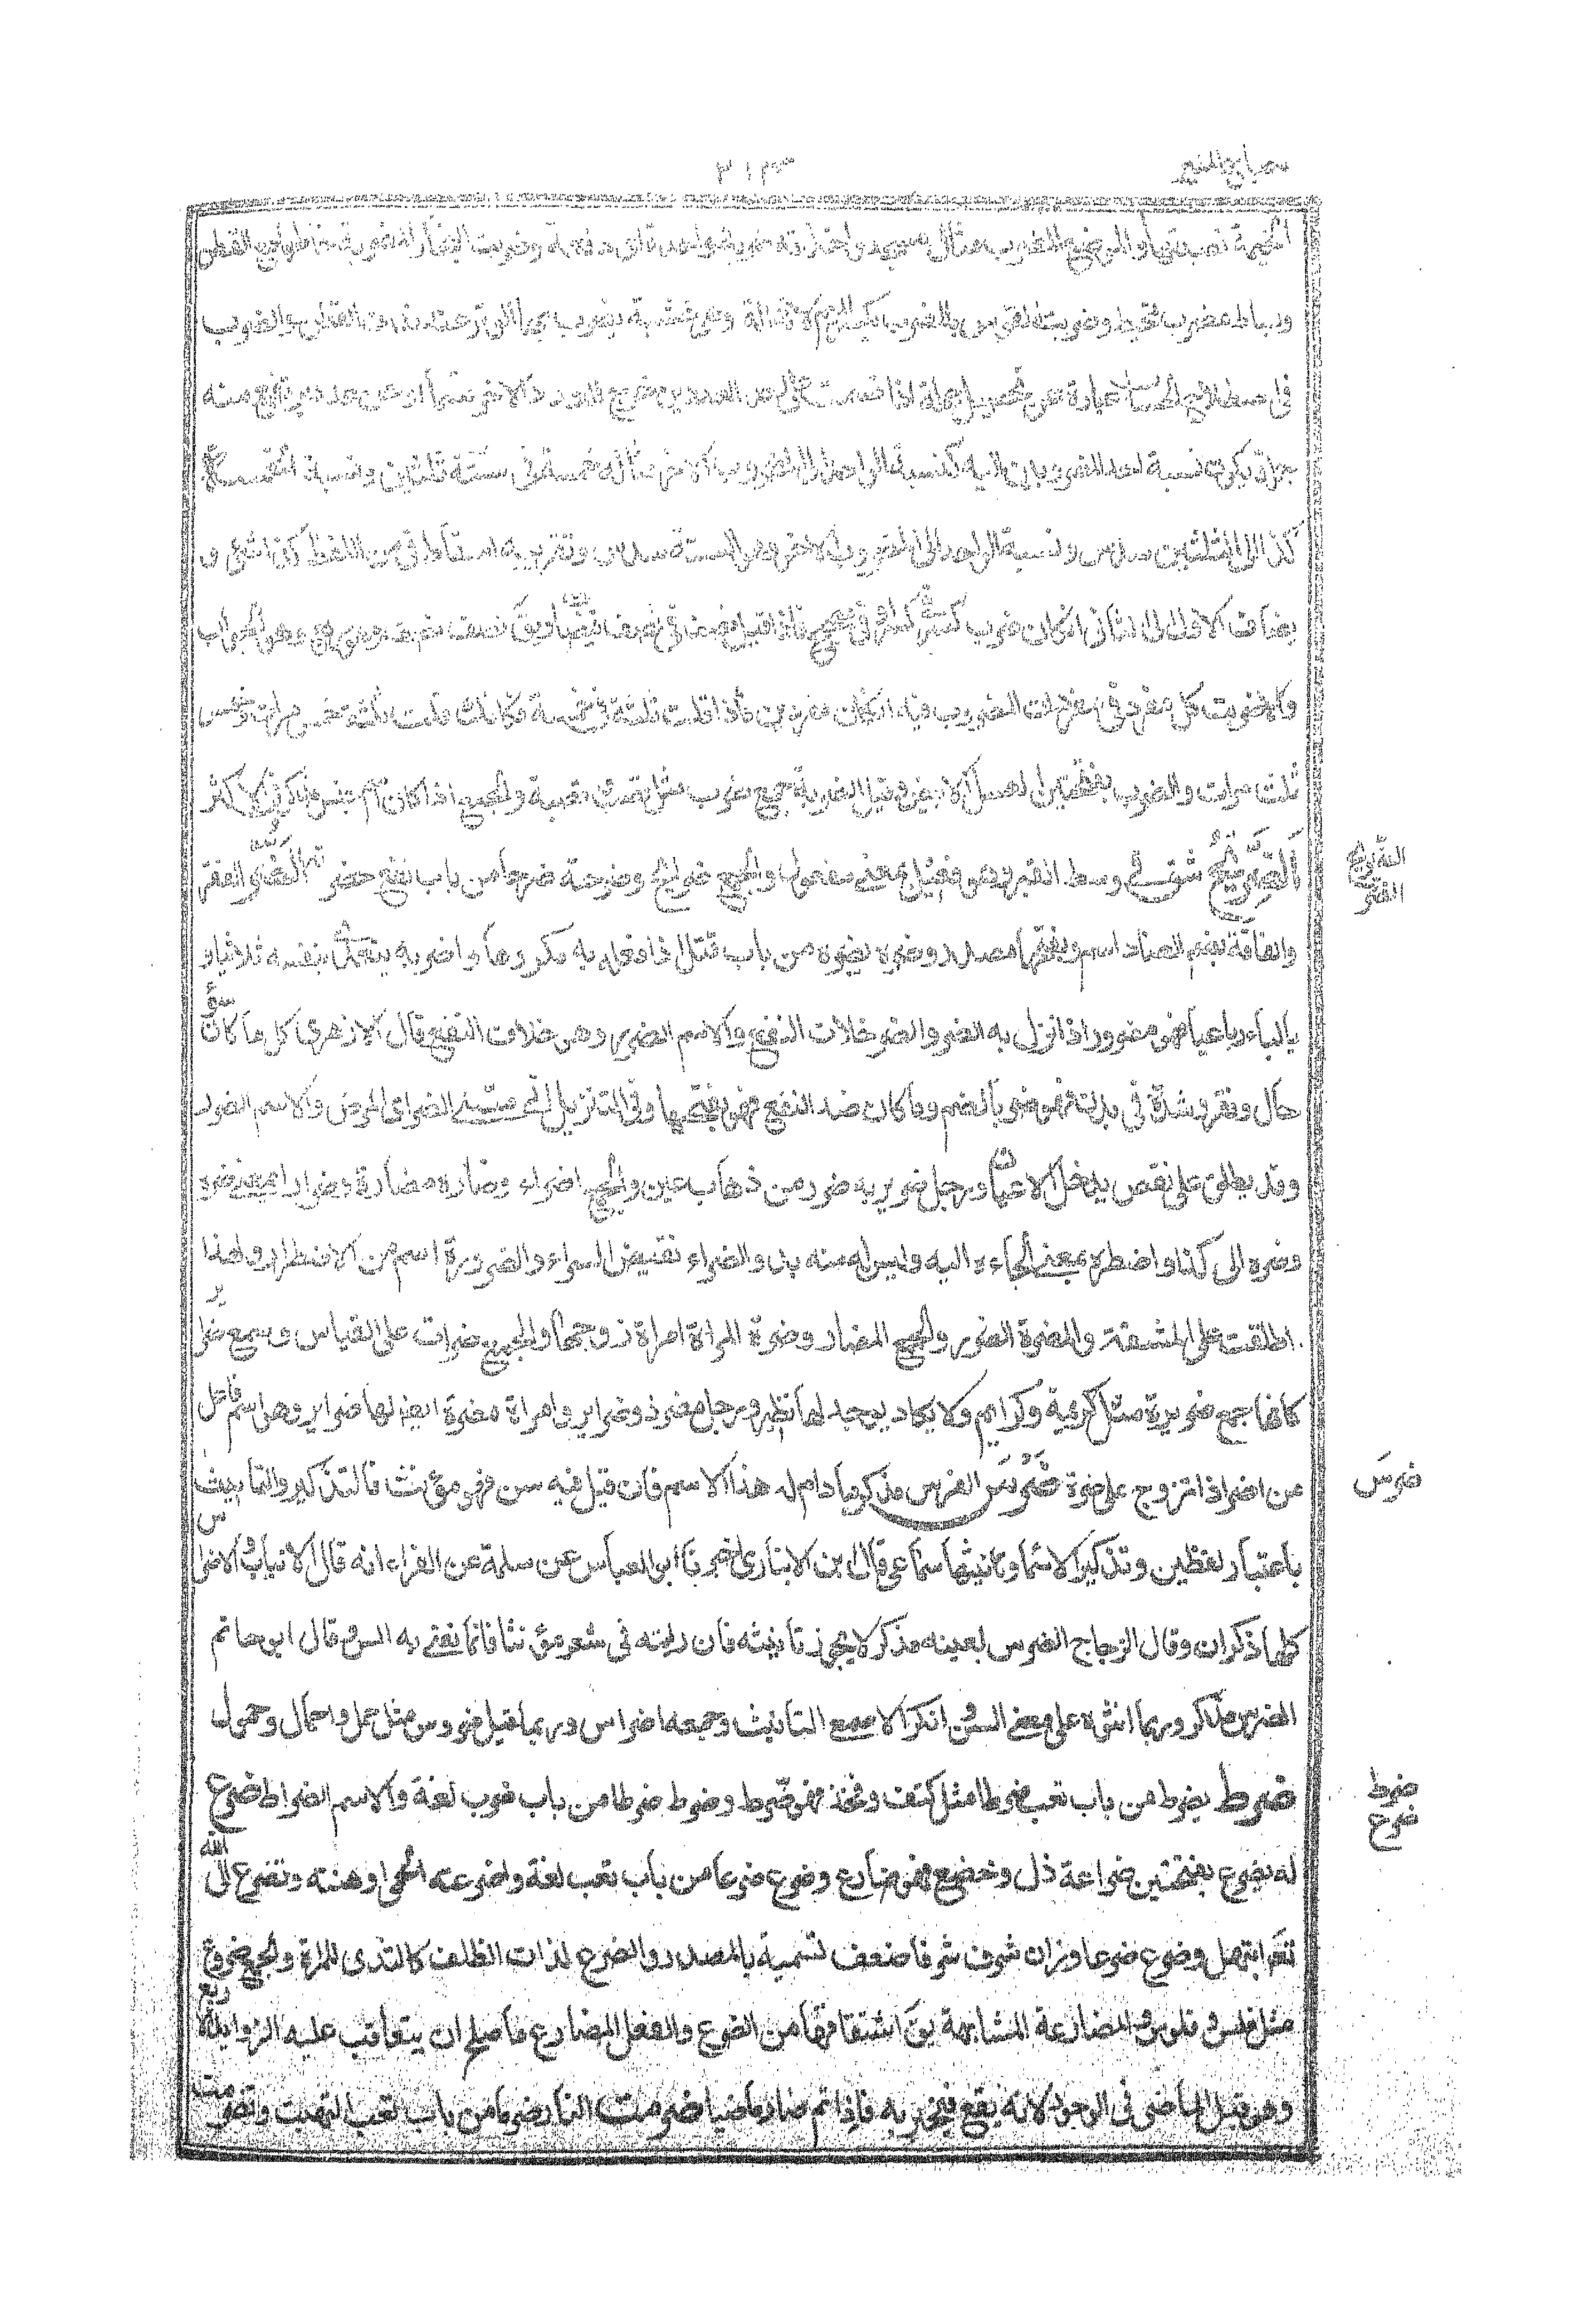 مصباح المنير
٣١٣
الخيمة نصبتها والموضع المضرب مثال مسجد واخذته ضربة واحدة اى دفعة وضربت النجاد المضربة خاطها مع القطن
وبساط مضرب مخيط وضربت القوس بالمضرب بكسر الميم لانه آلة وهى خشبة يضرب بها الوتر عند ندف القطن والضرب
فى اصطلاح الحساب عبارة عن تحصيل جملة اذا قسمت على احد العددين خرج العدد الاخر قسما او عن عدد يرتفع منه
جملة تكون نسبة احد المضروبين اليه كنسبة الواحد الى المضروب الاخر مثاله خمسة فى ستة ثلثين ونسبة الخمسة
الى الثلثين سدس ونسبة الواحد الى المضروب الاخر وهو الستة سدس وتقريبه اسقاط فى من اللفظ
يضاف الاول الى الثانى ان كان ضرب كسر فى كسر او فى صحيح فاذا قيل نصف فى نصف فيضاف ويق نصف نصف وهو ربع وهو الجواب
والاضربت كل مفرد فى مفردات المضروب فيه ان كان فاذا قلت ثلثة فى خمسة فكانك قلت ثلثة خمس مرات وخمس
ثلث مرات والضرب بفتحتين العسل الابيض وقيل الضربة جمع ضرب مثل قصب وقصبة والجمع اذا كان اسم جنس مذكر فى الاكثر
الضريح الضر
اَلضَّرِيْحُ شق فى وسط القبر وهو فعيل بمعنى مفعول والجمع ضرائح وضرحته ضرحا من باب نفع حضرته الضُّرُّ الفقر
والفاقة بضم الضاد اسم وبفتحها مصدر وضره يضره من باب قتل اذا فعل به مكروها واضر به يتعدى بنفسه ثلاثيا و
بالباء رباعيا فهو مضرور اذا نزل به الضر والضر خلاف النفع والاسم الضرر وهو خلاف النفع قال الازهرى كل ما كان سوء
حال وفقر وشدة فى بدن فهو ضر بالضم وما كان ضد النفع فهو بفتحها وفى التنزيل انى مسنى الضر اى المرض والاسم الضرر
وقد يطلق على نقص يدخل الاعيان ورجل ضرير به ضرر من ذهاب عين والجمع اضراء وضاره مضارة وضرارا بمعنى ضره
وضره الى كذا واضطره بمعنى الجاءه اليه وليس له منه بد والضراء نقيض السراء والضرورة اسم من الاضطرار ولهذا
اطلقت على المشقة والمضرة الضرر والجمع المضار وضرة المراة امراة زوجها والجمع ضرات على القياس وسمع ضرائر
كانها جمع ضريرة مثل كريمة وكرايم ولا يكاد يوجد لها نظير ورجل مضر ذو ضراير وامراة مضرة ايضا لها ضراير وهو اسم فاعل
ضرس
من اضر اذا تزوج على ضرة ضَرْسُ الفرس مذكر ما دام له هذا الاسم فان قيل فيه سن فهو مؤنث فالتذكير والتأنيث
باعتبار لفظين وتذكير الاسماء وتانيثها سماعى قال ابن الانبارى اخبرنا ابو العباس عن سلمة عن الفراء انه قال الانياب والاضراس
كلها ذكران وقال الزجاج الضرس بعينه مذكر لا يجوز تانيثه فان رايته فى شعر مؤنثا فانما يعنى به السن وقال ابو حاتم
الضرس مذكر وربما انثوه على معنى السن وانكر الاصمعى التانيث وجمعه اضراس وربما قيل ضروس مثل حمل واحمال وحمول
ضرط
ضرع
ضرط يضرط من باب تعب ضرطا مثل كتف وفخذ فهو ضرط وضرط ضرطا من باب ضرب لغة والاسم الضراط ضرع
له يضرع بفتحتين ضراعة ذل وخضع فهو ضارع وضرع ضرعا من باب تعب لغة واضرعته الحمى اوهنته وتضرع الى الله
تعا ابتهل وضرع ضرعا وزان شرف شرفا ضعف تسمية بالمصدر والضرع لذات الظلف كالثدى للمراة والجمع ضروع
مثل فلس وفلوس والمضارعة المشابهة يق اشتقاقها من الضرع والفعل المضارع ما صلح ان يتعاقب عليه الزوايد الاربع
وهو قبل الماضى فى الوجود لانه يقع فيخبر به فاذا تم صار ماضيا ضرمت النار ضرما من باب تعب التهبت وتضرمت